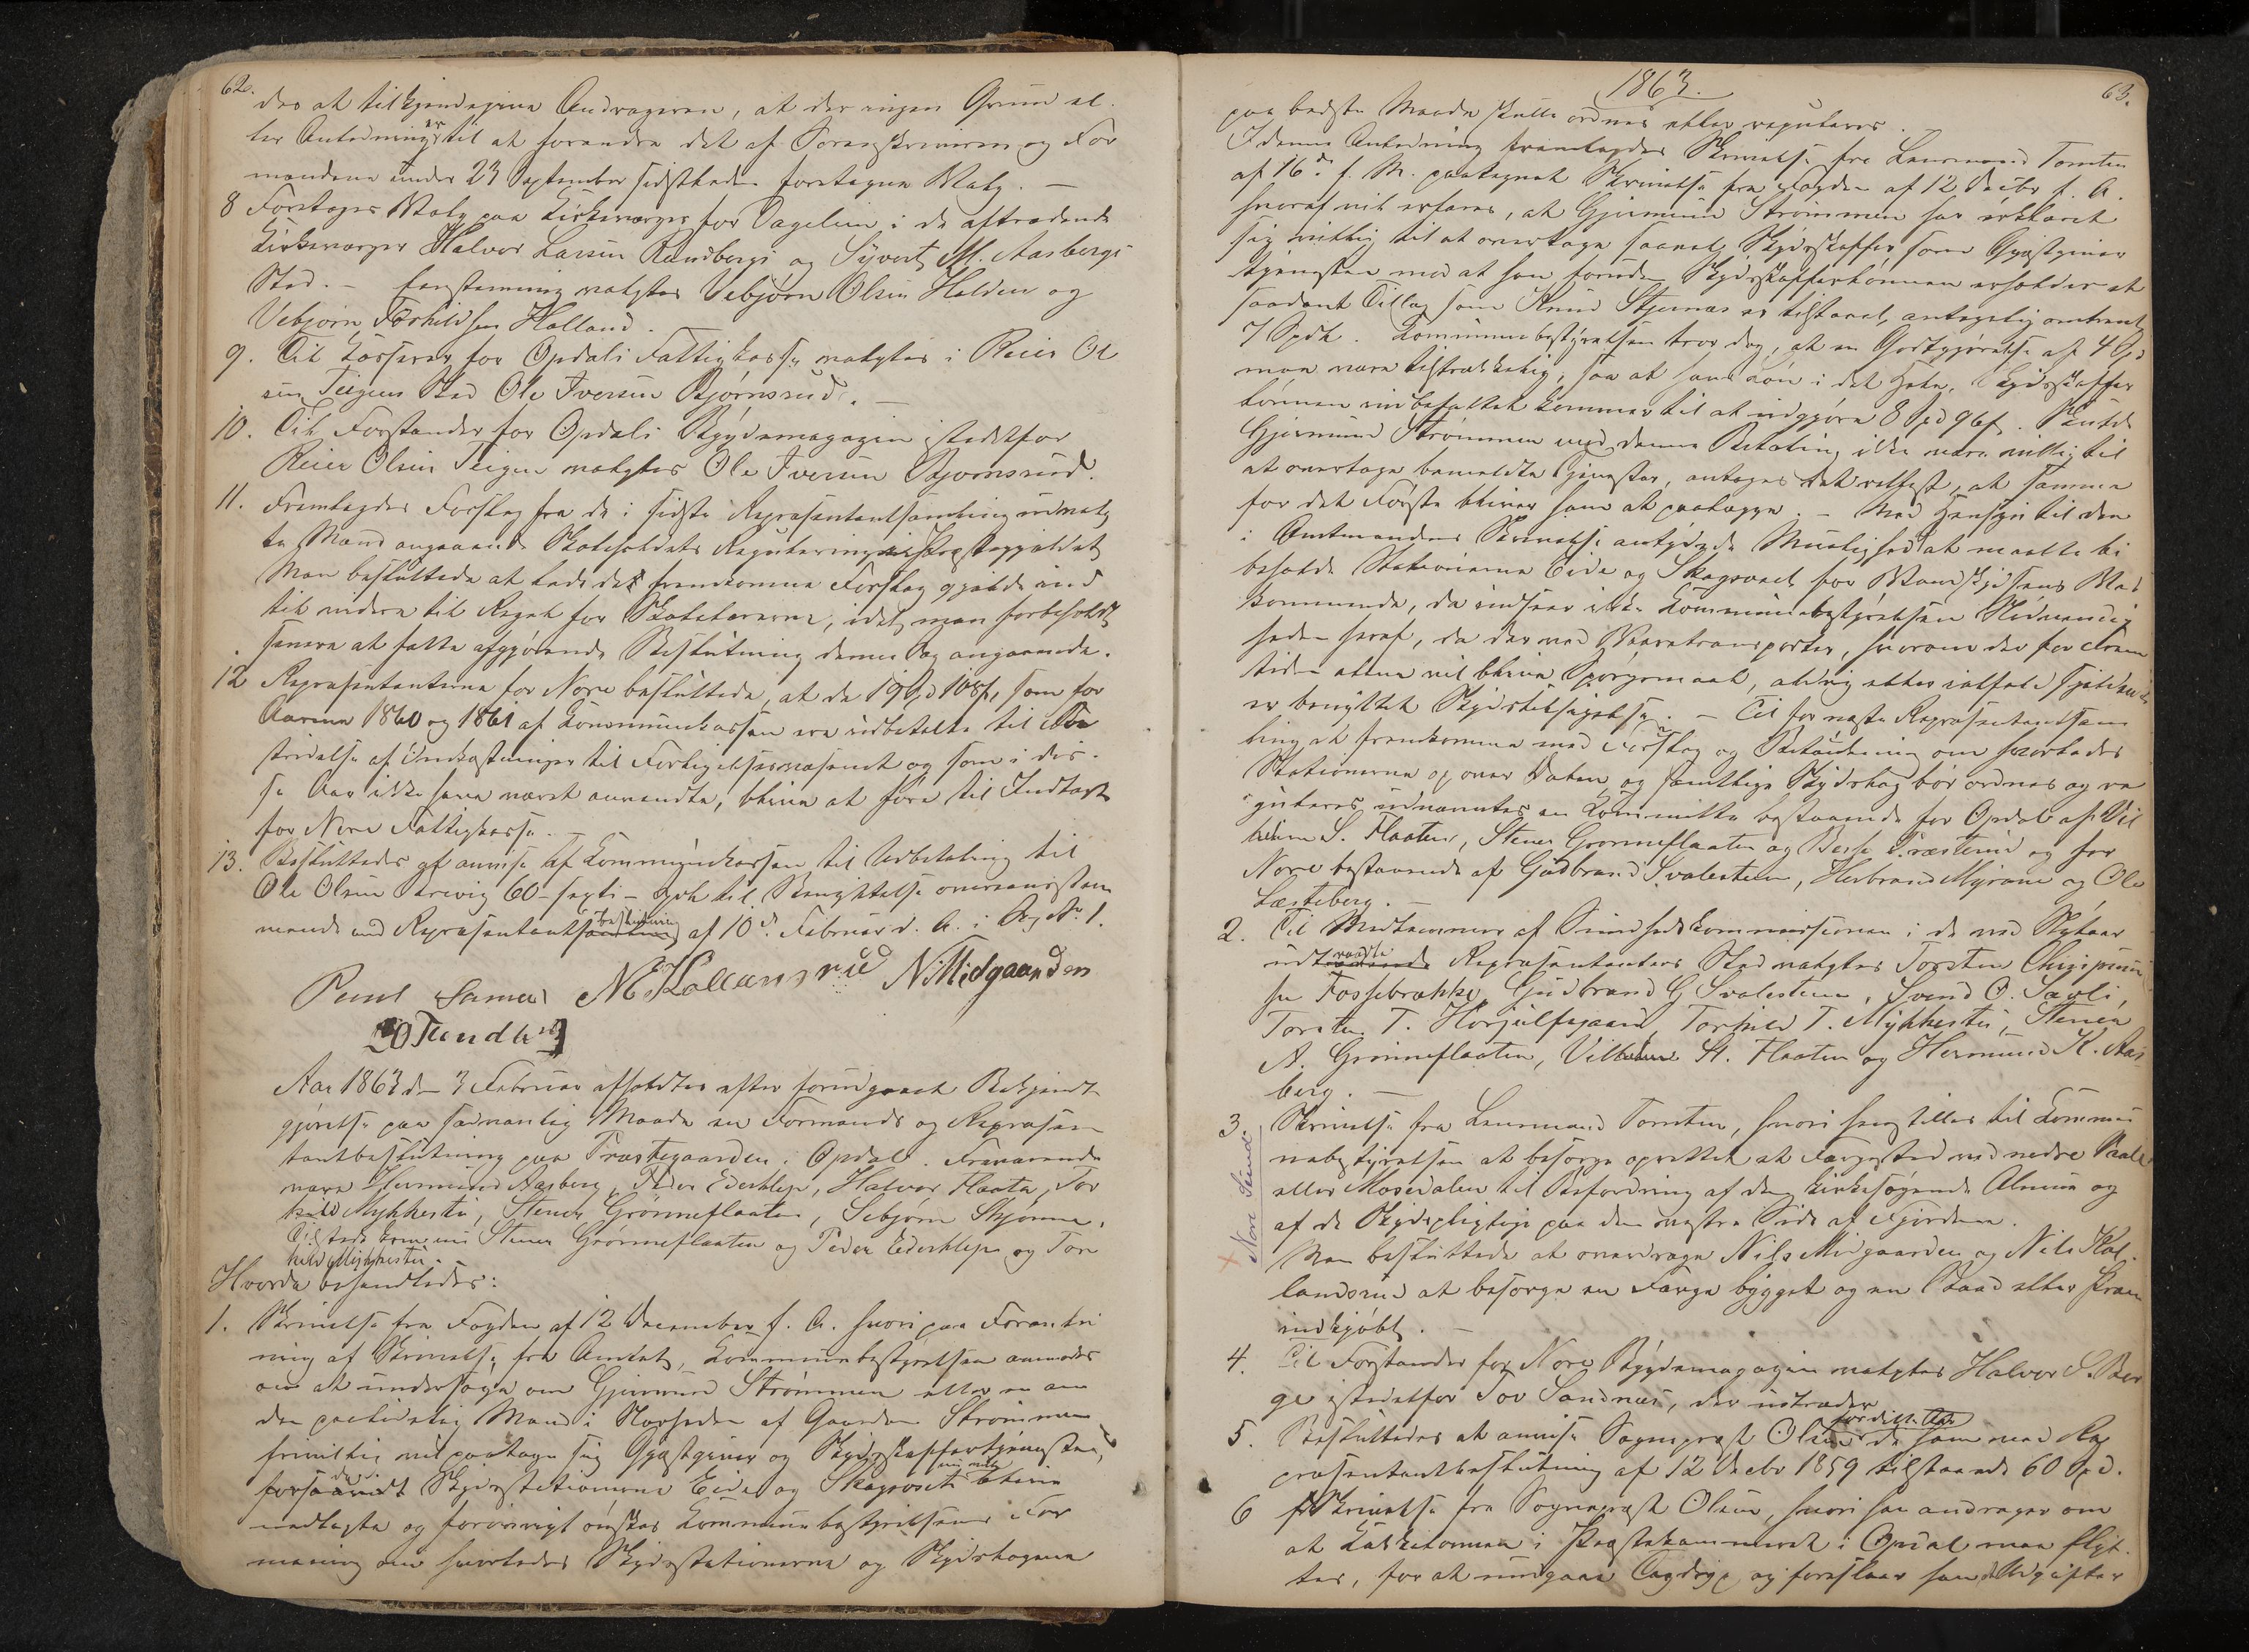 62.
des at tilkjendegive Andrageren, at der ingen Grund el-
ler Anledning er til at forandre det af Sorenskriveren og For
mændene under 23 September sidstleden foretagne Valg. —
8 Foretoges Valg paa Kirkeværger for Dagelien i de aftrædende
Kirkeværger Halvor Larsen Randbergs og Syvert M. Aasbergs
Sted. — Eenstemmig valgtes Vebjørn Olsen Holden og
Vebjørn Torkildsen Holland.
9. Til Kasserer for Opdals Fattigkasse valgtes i Reier Ol
sen Teigens Sted Ole Iversen Bjørnsrud. —
10. Til Forstander for Opdals Bygdemagazin istedetfor
Reier Olsen Teigen valgtes Ole Iversen Bjørnsrud.
11. Fremlagdes Forslag fra de i sidste Repræsentantsamling udvalg
te Mænd angaaende Skoleholdets Regulering i Præstegjeldet
Man besluttede at lade det fremkomne Forslag gjælde ind
til videre til Regel for Skolelærerne, idet man forbeholdt
senere at fatte afgjørende Beslutning denne Sag angaaende.
12 Repræsentanterne for Nore besluttede, at de 19 Spd 108 s, som for
Aarene 1860 og 1861 af Kommunekassen ere udbetalte til Be
stridelse af Omkostninger til Forligelsesvæsenet og som i dis-
se Aar ikke have været anvendte, blive at føre til Indtægt
for Nore Fattigkasse.
13. Besluttedes at anvise af Kommunekassen til Udbetaling til
Ole Olsen 60 – sexti – Spd til Benyttelse overensstem
mende med Repræsentantbeslutning af 10de Februar d. A. i Sag No 1.
Poul Samer M Kollansrud N Midgaarden
O Tundh
Aar 1863 den 3 Februar afholdtes efter forudgaaet Bekjendt
gjørelse paa sædvanlig Maade en Formands og Repræsen
tantbeslutning paa Præstegaarden i Opdal. Fraværende
vare Hermund Aasberg, Peder Ederklep, Halvor Flaata, Tor
kild Mykkestu, Stener Grønneflaaten, Sebjørn Skjønne.
Tilstede kom nu Stener Grønneflaaten og Peder Ederklep og Tor
kild Mykkestu.
Hvorda behandledes:
1. Skrivelse fra Fogden af 12 December f. A. hvori paa Foranled
ning af Skrivelse fra Amtet, Kommunebestyrelsen anmodes
om at undersøge om Gjermund Strømmen eller en an
den paalidelig Mand i Nærheden af Gaarden Strømmen
frivillig vil paatage sig Gjæstgiver og Skydsskaffertjenesten,
forsaavidt Skydsstationerne Eide og Skagosed blive
nedlagte og forøvrigt ønskes Kommunebestyrelsens For
mening om hvorledes Skydsstationerne og Skydslagene
1863.
63.
paa bedste Maade skulle ordnes eller reguleres.
I denne Anledning fremlagdes Skrivelse fra Lensmand Tomten
af 16de f. M. paategnet Skrivelse fra Fogden af 12 Decbr f. A.
hvoraf vil erfares, at Gjermund Strømmen har erklæret
sig villig til at overtage saavel Skydsskaffer som Gjæstgiver
tjenesten mod at han foruden Skydsskafferlønnen erholder et
saadant Tillæg som Knud Stjernes er tilstaaet, antagelig omtrent
7 Spdl. Kommunebestyrelsen tror dog, at en Godtgjørelse af 4 Spd
maa være tilstrækkelig, saa at hans Løn i det Hele, Skydsskaffer
lønnen indbefattet kommer til at udgjøre 8 Spd 96 s. Skulde
Gjermund Strømmen med denne Betaling ikke være villig til
at overtage bemeldte Tjenester, antages det rettest, at samme
for det Første bliver ham at paalægge. — Med Hensyn til den
i Amtmandens Skrivelse antydede Mulighed at maatte bi
beholde Stationerne Eide og Skagosed for Vandskydsens Ved
kommende, da indsaar ikke Kommunebestyrelsen Nødvendig
heden heraf, da der ved Varetransporter, hvorom der for Frem
tiden alene vil blive Spørgsmaal, aldrig eller ialfald sjelden
er benyttet Skydstilsigelse. — Til for næste Repræsentantsam
ling at fremkomme med Forslag og Betænkning om hvorledes
Stationerne op over Dalen og samtlige Skydslag bør ordnes og re
guleres udnævntes en Kommitte bestaaende for Opdal af Vil
helm S. Flaaten, Stener Grønneflaaten og og for
Nore bestaaende af Gudbrand Svalesteen, Herbrand Myrane og Ole
Læsteberg. —
2. Til Medlemmer af Sundhedskommissionen i de ved Nytaar
udtraadte Repræsentanters Sted valgtes Torsten
sen Fossebrække, Gudbrand G Svalesteen, Svend O. Sævli,
Torsten T. Horjulfsgaard, Torkild T. Mykkestu, Stener
A. Grønneflaaten, Vilhelm St. Flaaten og Hermund K. Aas
berg. —
3. Skrivelse fra Lensmand Tomten, hvori henstilles til Kommu
nebestyrelsen at besørge oprettet et Færgested ved nedre Vaale
eller Mosedalen til Befordring af den kirkesøgende Almue og
af de Skydspligtige paa den vestre Side af Fjorden.
Man besluttede at overdrage Nils Midgaarden og Nils Kol-
landsrud at besørge en Færge bygget og en Baad eller Pram
indkjøbt. —
× Nore Sund.
4. Til Forstander for Nore Bygdemagazin valgtes Halvor S. Ber
ge istedetfor Tov Sandnes, der udtræder
5. Besluttedes at anvise Sogneprest Olsen for dette Aar de ham ved Re
præsentantbeslutning af 12 Decbr 1859 tilstaaede 60 Spd.
6 Skrivelse fra Sogneprest Olsen, hvori han andrager om
at Kakkelovnen i Præstekammeret i Opdal maa flyt-
tes, for at undgaae Tagdryp og foreslaar han Udgifter